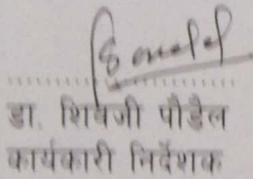 डा. शिवजी पौडैल
कार्यकारी निर्देशक